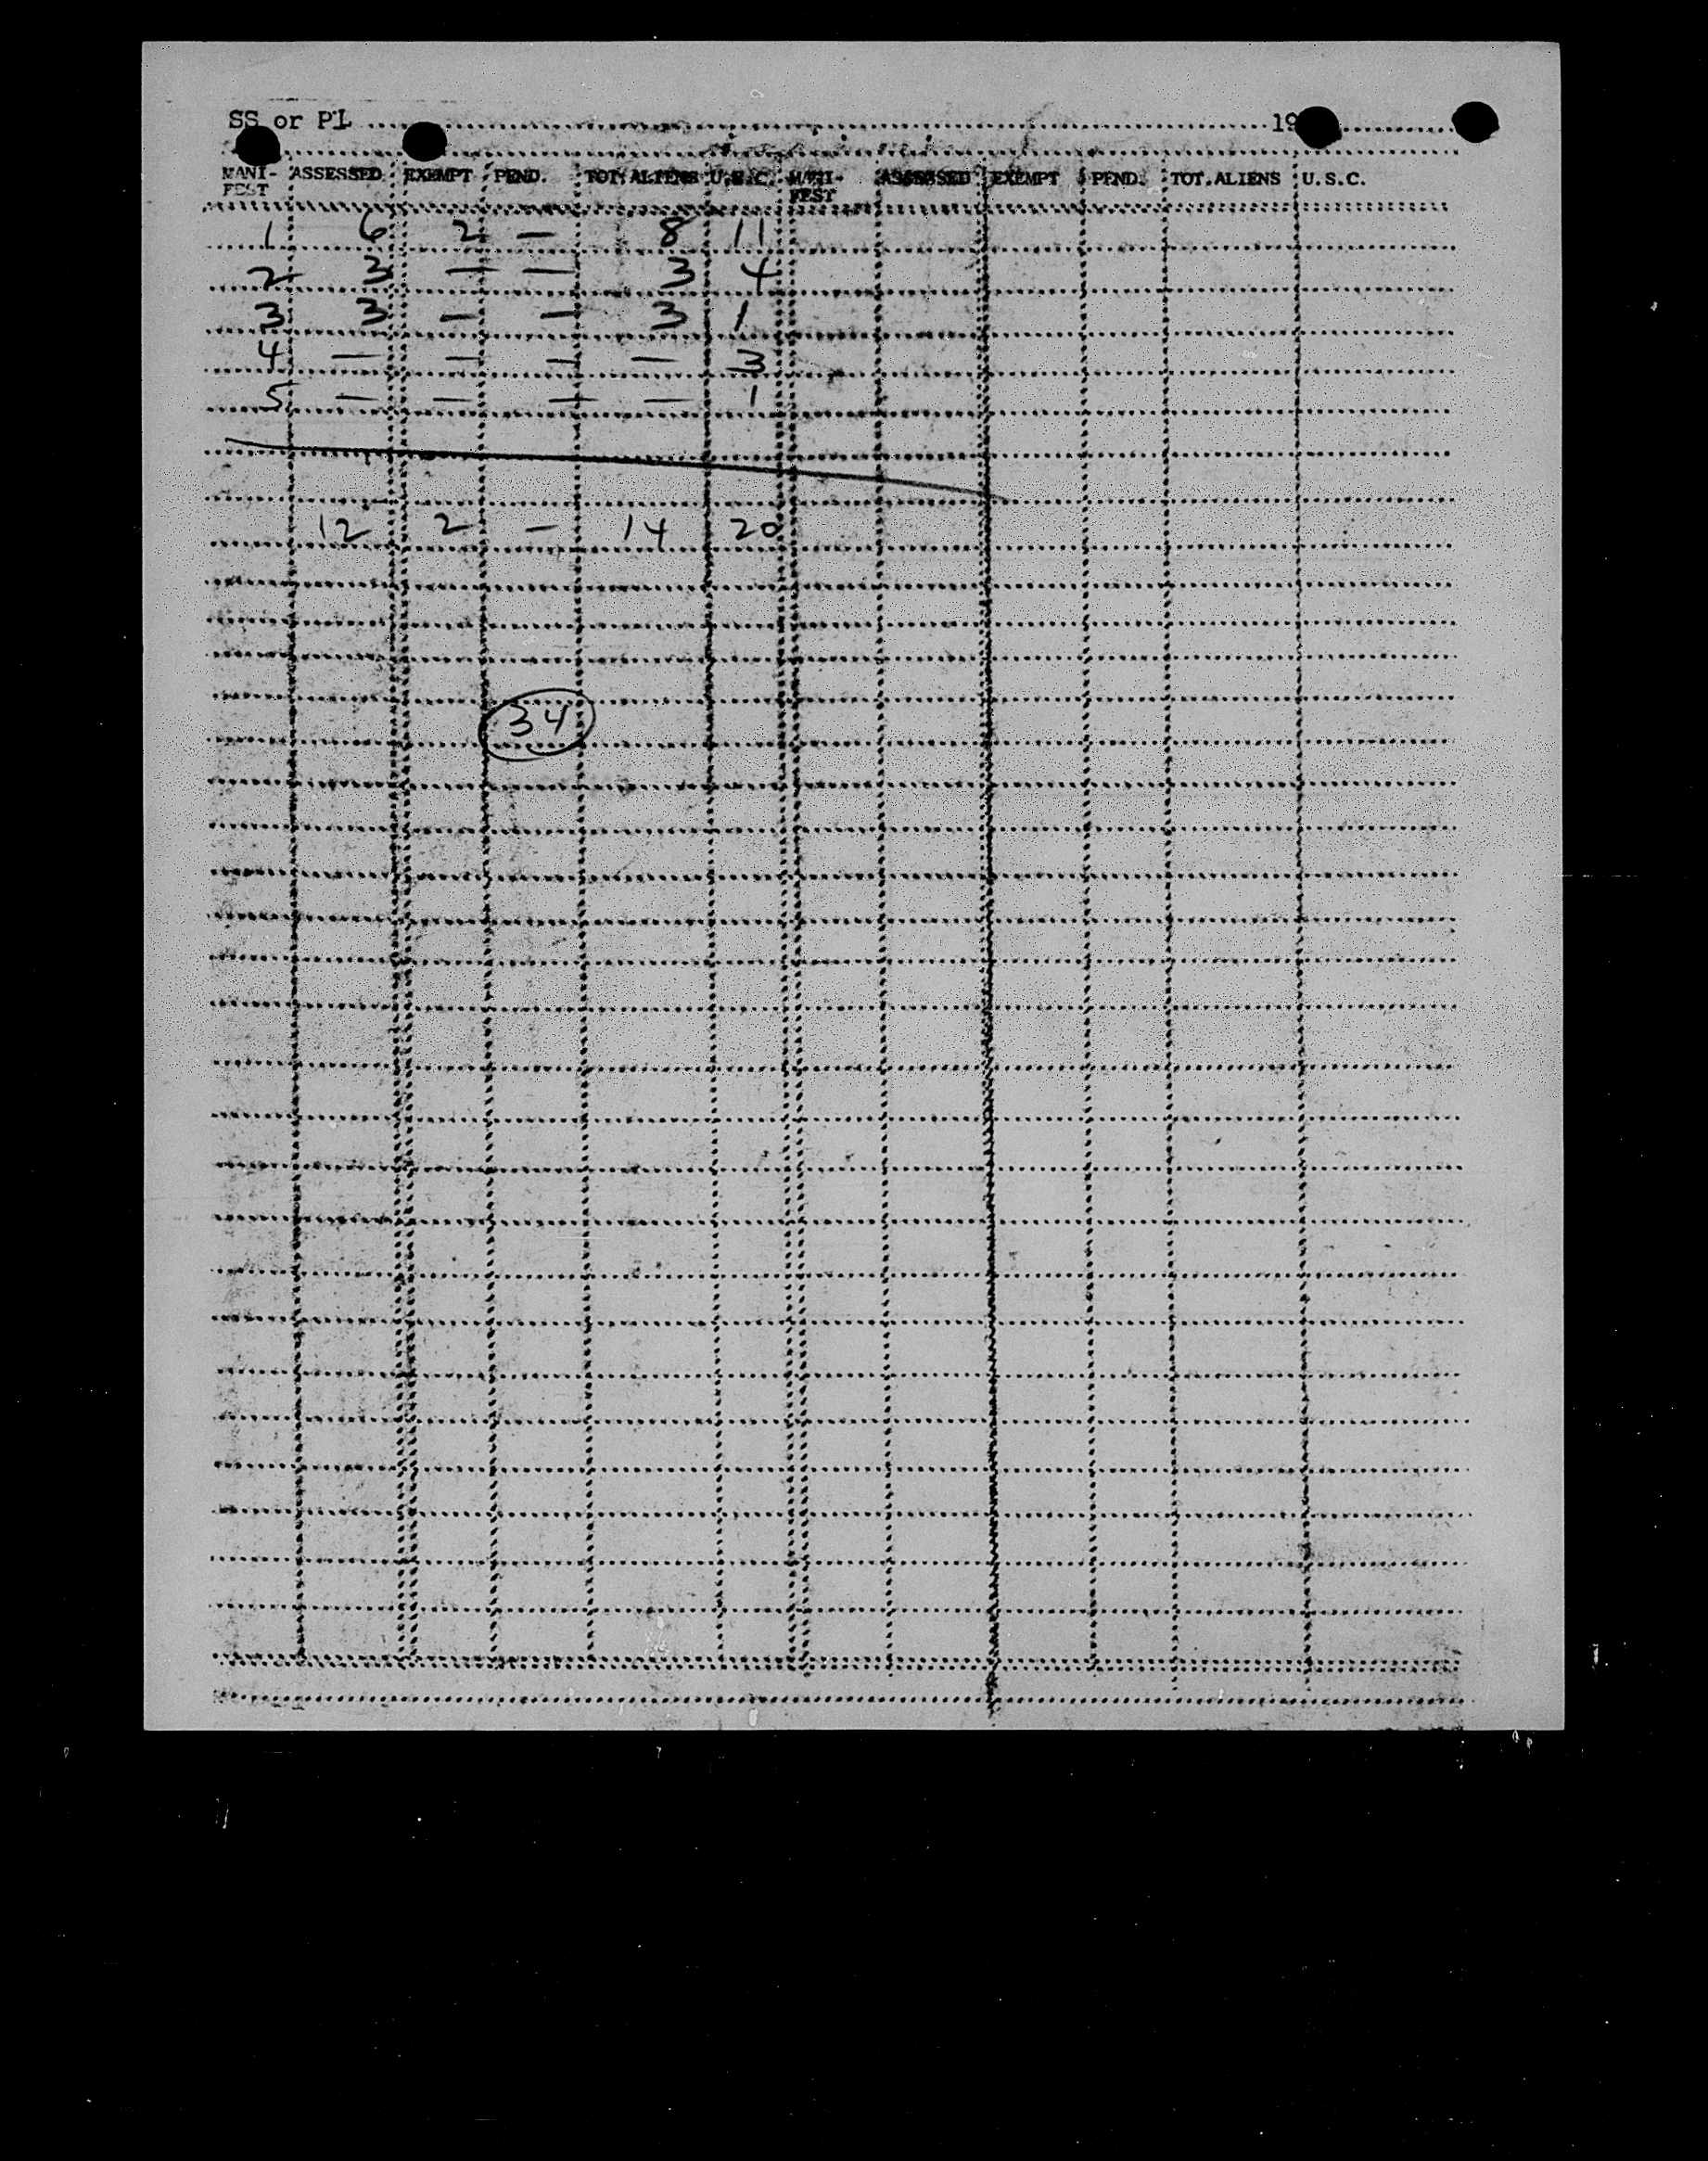 SS or PL 19
MANI- ASSESSED EXEMPT PEND. TOT. ALIENS U.S.C. MANI- ASSESSED EXEMPT PEND. TOT.ALIENS U.S.C.
FEST FEST
1 6 2 — 8 11
2 3 — — 3 4
3 3 — — 3 1
4 — — — — 3
5 — — — — 1
12 2 — 14 20
34